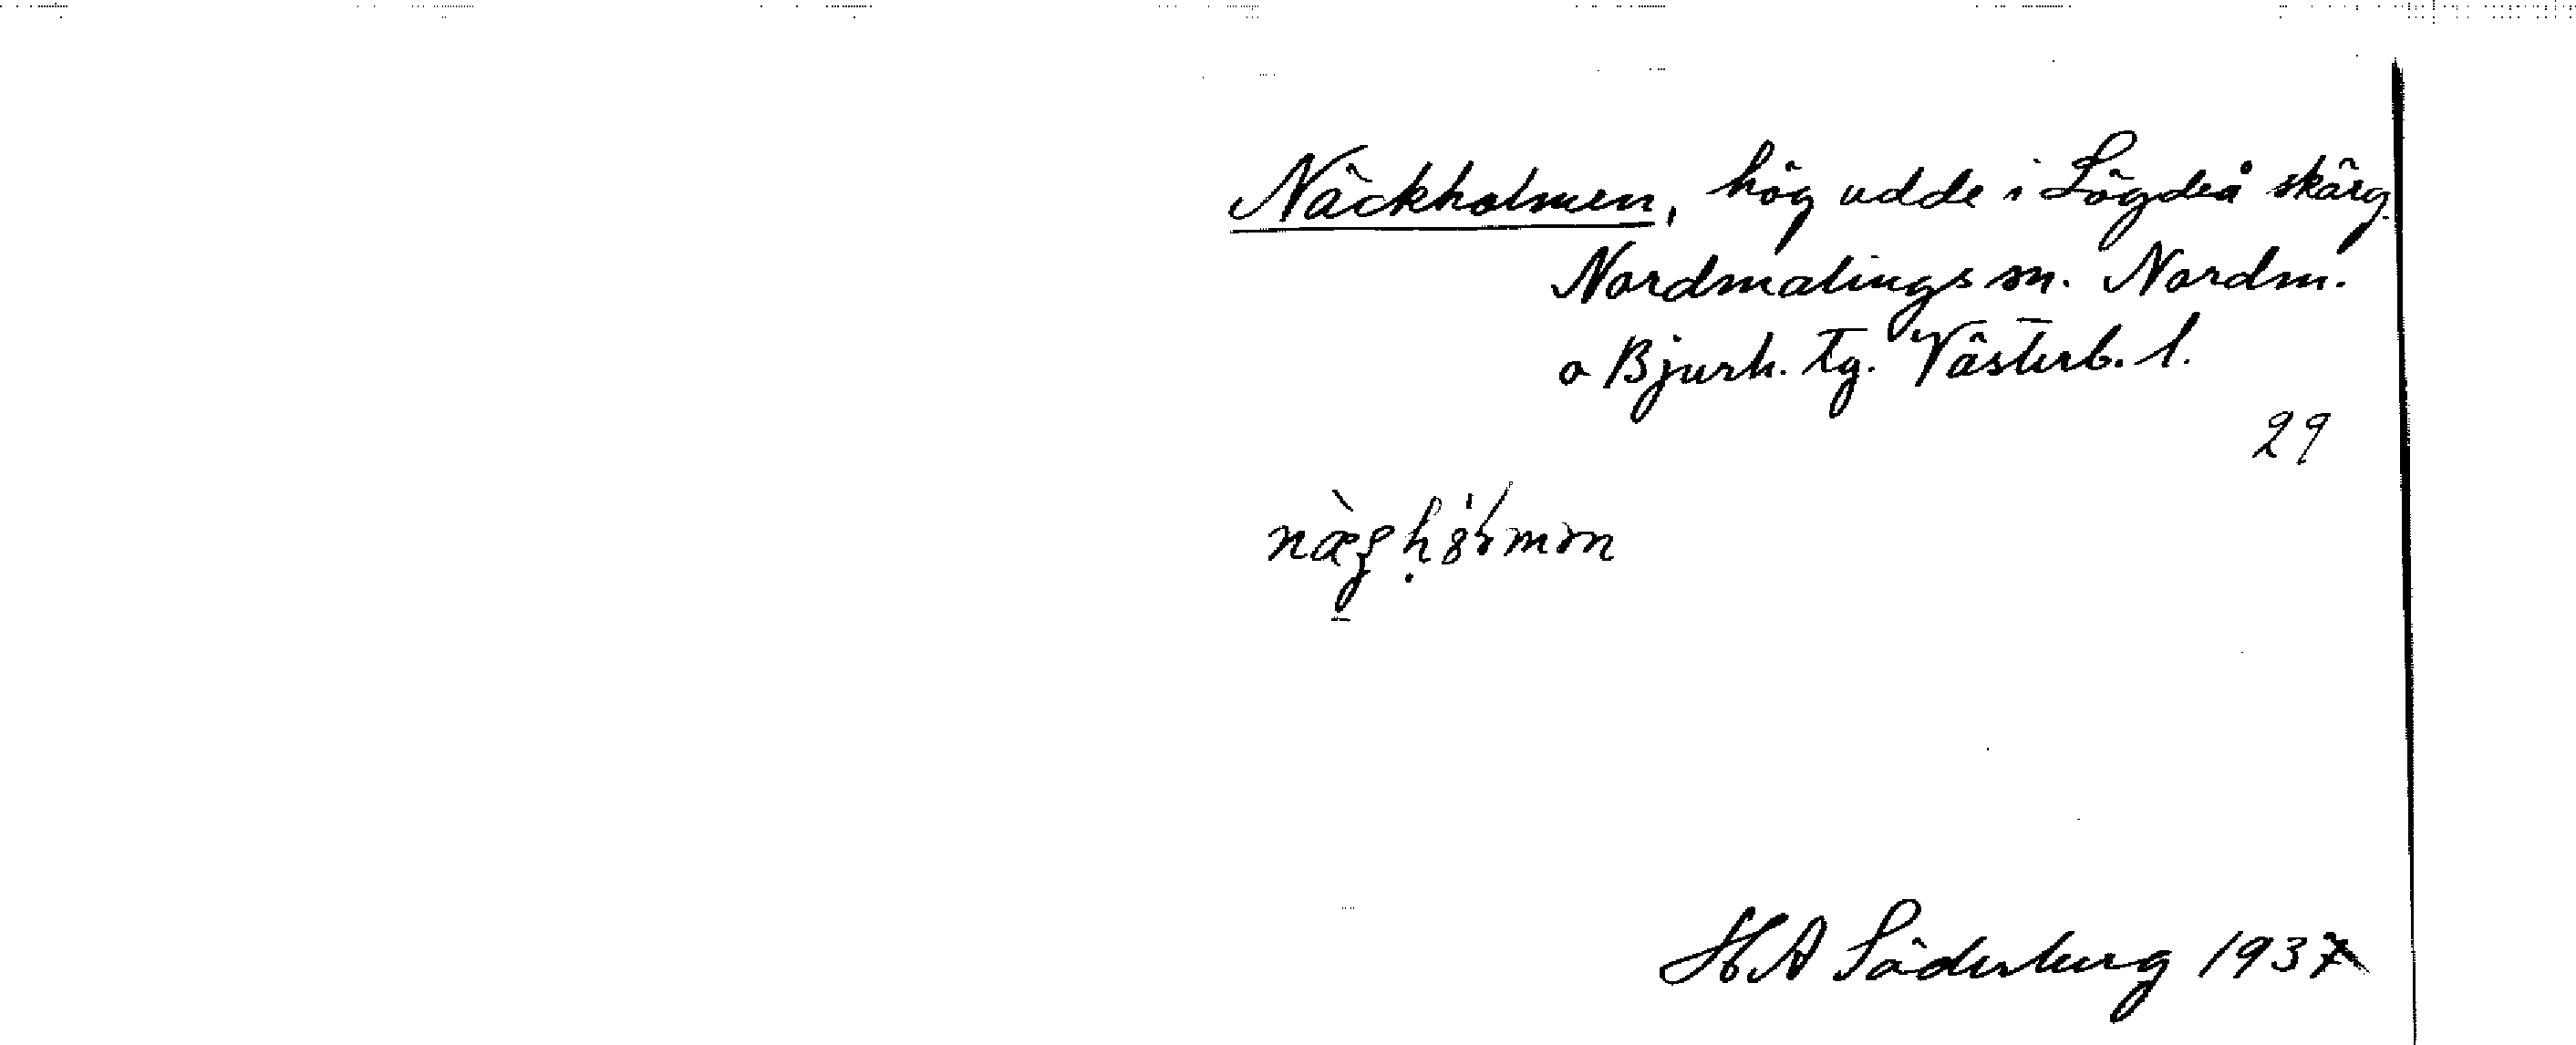 Näckholmen, hög udde i Lögdeå skärg.
Nordmalings sn. Nordm.
o Bjurh. tg. Västerb. l.
29
H A Söderberg 1937